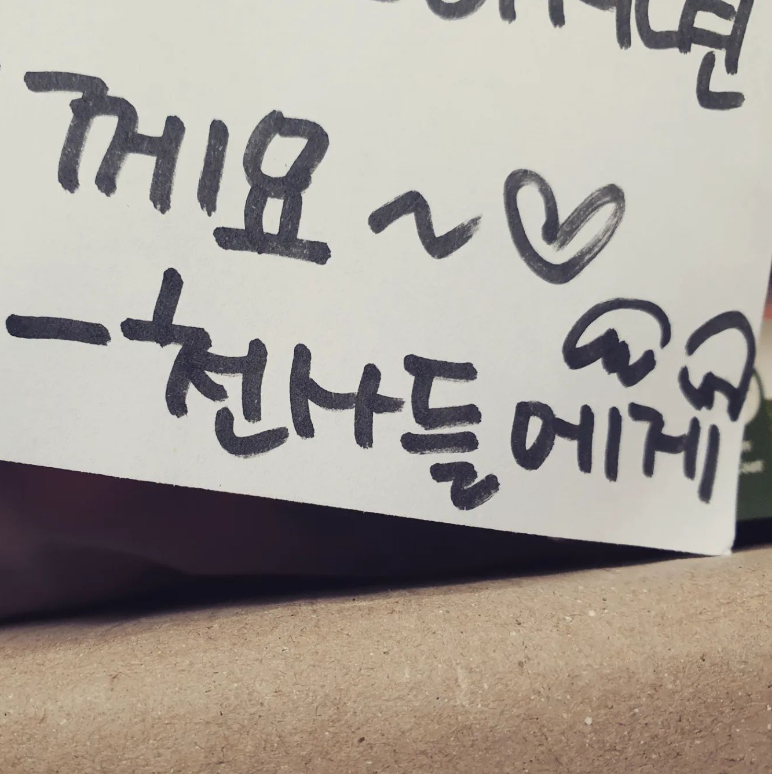 께요~♡
-천사들에게